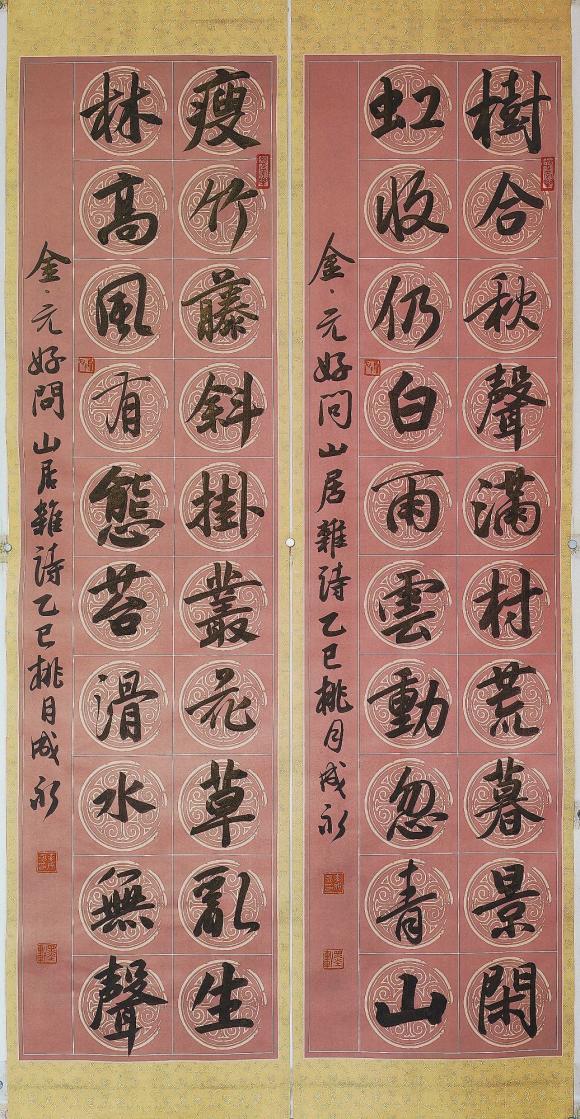 樹合秋聲滿村荒暮景閑
虹收仍白雨雲動忽青山
金·元好问山居雜詩乙巳桃月成永
瘦竹藤斜掛叢花草亂生
林高風有態苔滑水無聲
金·元好問山居雜詩乙巳桃月成永